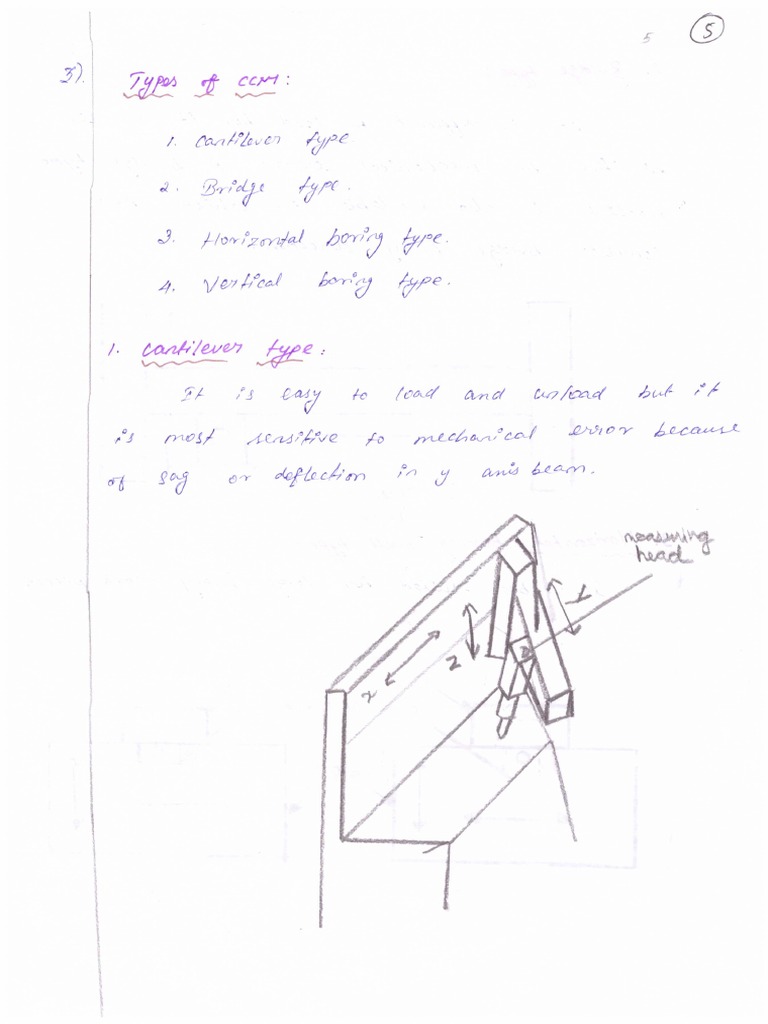 5 5
3). Types of CCM :
1. Cantilever type
2. Bridge type.
3. Horizontal boring type.
4. Vertical boring type.
1. Cantilever type :
It is easy to load and unload but it
is most sensitive to mechanical error because
of sag or deflection in y axis beam.
measuring
head
y
z
x